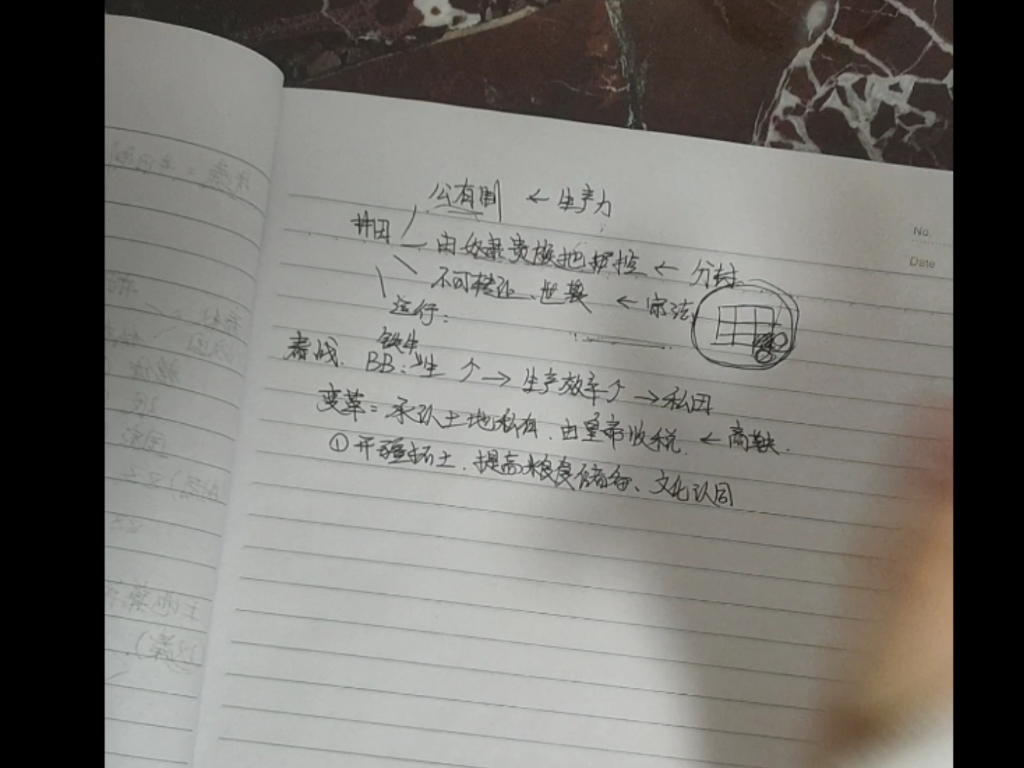 公有制 ← 生产力
井田 由奴隶贵族 ← 分封
不可转让、世袭 ← 宗法
运行：
铁牛
春战 BB：牛 ↑ → 生产效率↑ → 私田
变革：承认土地私有、由皇帝收税 ← 商鞅.
①开疆拓土、提高粮食储备、文化认同
No.
Date